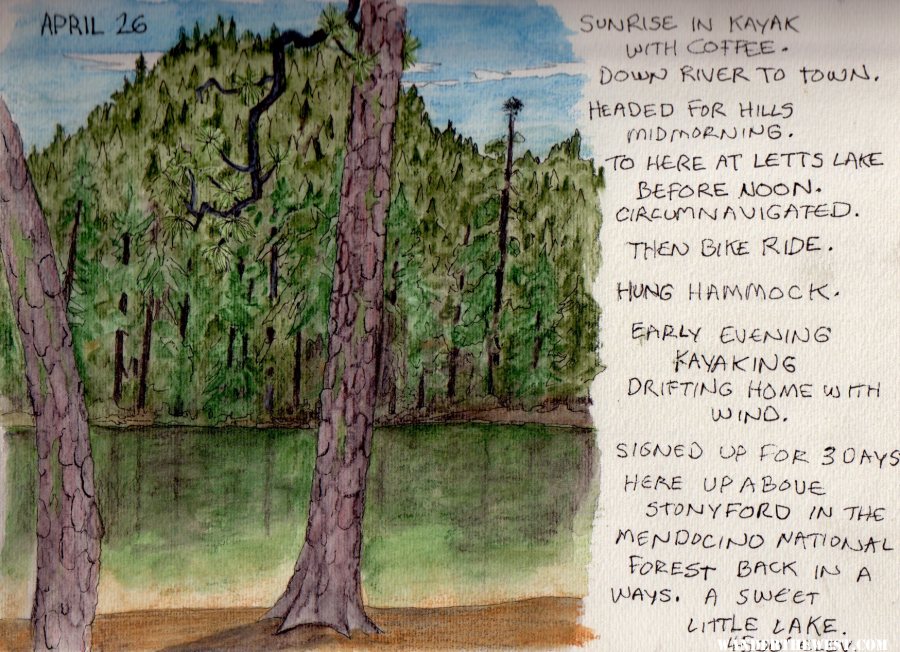 APRIL 26
SUNRISE IN KAYAK
WITH COFFEE.
DOWN RIVER TO TOWN.
HEADED FOR HILLS
MIDMORNING.
TO HERE AT LETTS LAKE
BEFORE NOON.
CIRCUMNAVIGATED.
THEN BIKE RIDE.
HUNG HAMMOCK.
EARLY EVENING
KAYAKING
DRIFTING HOME WITH
WIND.
SIGNED UP FOR 3 DAYS
HERE UP ABOVE
STONYFORD IN THE
MENDOCINO NATIONAL
FOREST BACK IN A
WAYS. A SWEET
LITTLE LAKE.
ELEV.